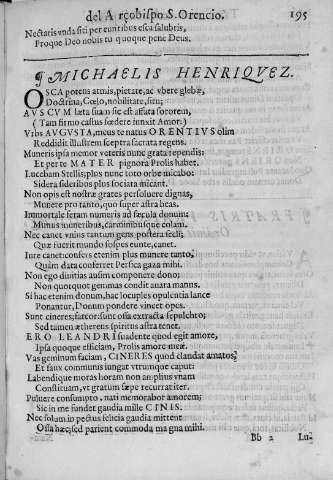 del Arçobispo S. Orencio. 195
Nectaris vnda siti per euntibus esca salubris,
Proque Deo nobis tu quoque pene Deus.
¶ MICHAELIS HENRIQVEZ.
OSCA potens armis, pietate, ac vbere glebæ,
Doctrina, Cœlo, nobilitate, situ;
AVSCVM læta suam sic est affata sororem,
(Tam firmo castus fœdere iunxit Amor.)
Vrbs AVGVSTA, meus te natus ORENTIVS olim
Reddidit illustrem sceptra sacrata regens.
Muneris ipsa memor veteris nunc grata rependis:
Et per te MATER pignora Prolis habet.
Lucebam Stellis; plus nunc toto orbe micabo:
Sidera sideribus plus sociata micant.
Non opis est nostræ grates persoluere dignas,
Munere pro tanto, quo super astra beas.
Immortale feram numeris ad sæcula donum:
Munus muneribus, carminibusque colam.
Nec canet vnius tantum gens postera sæcli;
Quæ fuerit mundo sospes eunte, canet.
Iure canet: consers etenim plus munere tanto,
Quàm data conferret Persica gaza mihi.
Non ego diuitias auim componere dono;
Non quotquot gemmas condit auara manus.
Si hæc etenim donum, hæc locuples opulentia lance
Ponantur, Donum pondere vincet opes.
Sunt cineres; fateor: sunt ossa extracta sepulchro;
Sed tamen æthereus spiritus astra tenet.
ERO LEANDRI suadente quod egit amore,
Ipsa quoque efficiam, Prolis amore meæ.
Vas geminum faciam, CINERES quod claudat amatos,
Et faux communis iungat vtrumque caput:
Labendique moras horam non amplius vnam
Constituam, vt gratum sæpe recurrat iter.
Puluere consumpto, nati memorabor amorem;
Sic in me fundet gaudia mille CINIS.
Nec solùm in pectus felicia gaudia mittent
Ossa hæc; sed parient commoda magna mihi.
Bb 2 Lu-